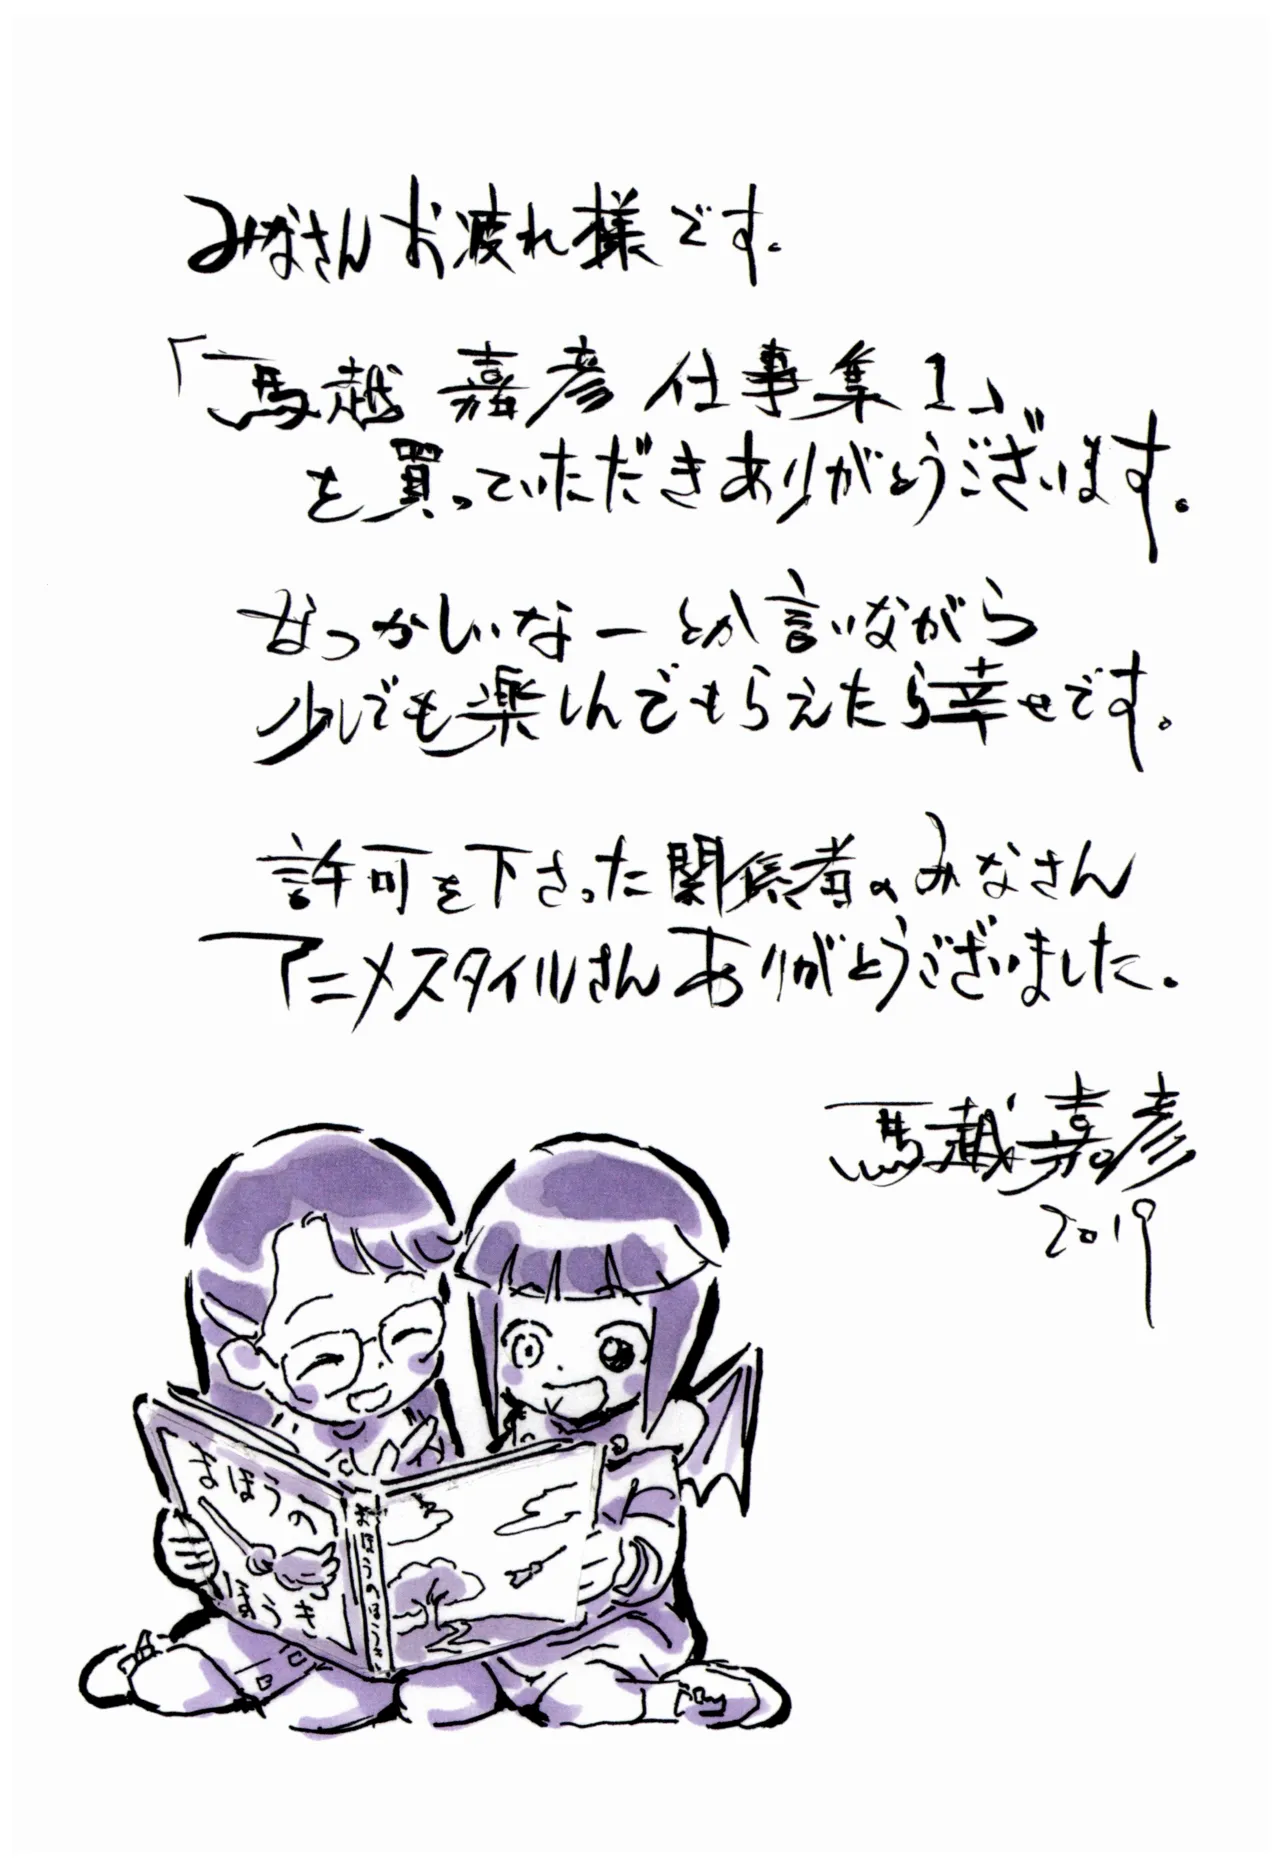 みなさんお疲れ様です。
「馬越 嘉彦 仕事集1」
を買っていただきありがとうございます。
なつかしいなーとか言いながら
少しでも楽しんでもらえたら幸せです。
許可を下さった関係者のみなさん
アニメスタイルさんありがとうございました。
馬越嘉彦
2019
まほうの
ほうき
まほうのほうき